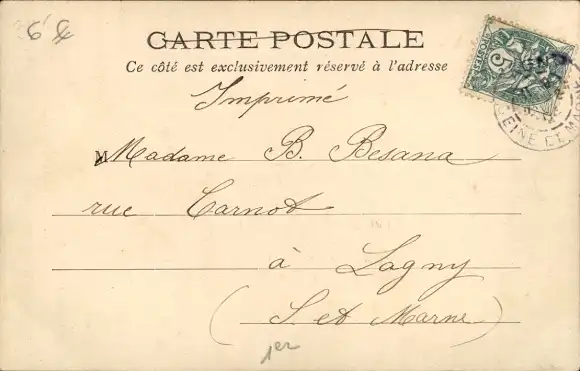 6
CARTE POSTALE
Ce côté est exclusivement réservé à l'adresse
Imprimé
Madame B. Besana
rue Carnot
à Lagny
(S. et Marne)
1er
5c
POSTES
SEINE ET MA